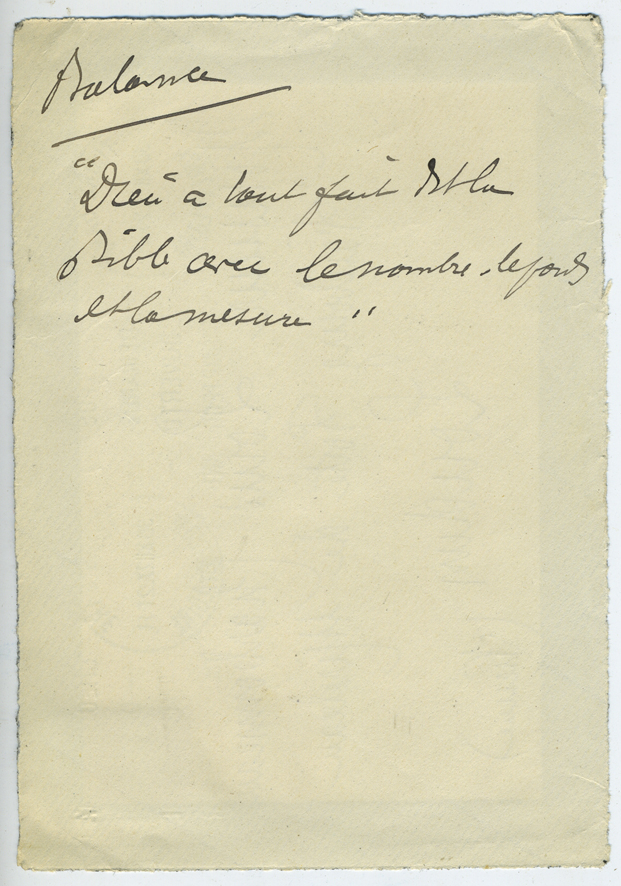 Balance
"Dieu" a tout fait dit la
Bible avec le nombre, le poids
et la mesure "